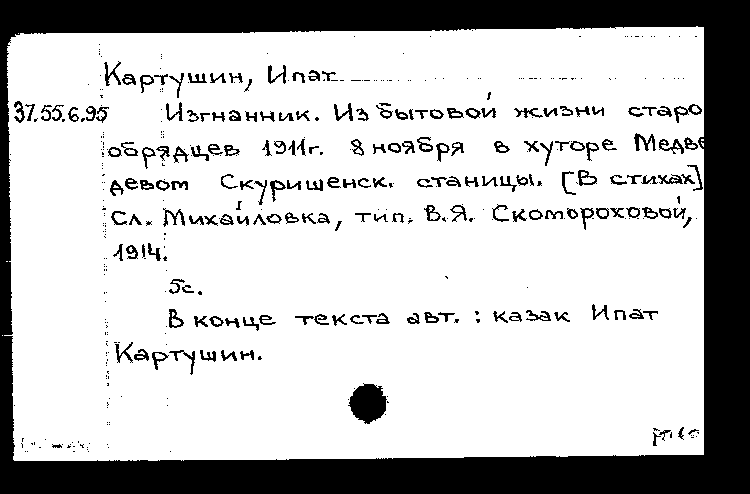 Картушин, Ипат
37.55.6.95 Изгнанник. Из бытовой жизни старо
обрядцев 1911г. 8 ноября в хуторе Медве
девом Скуришенск. станицы. [В стихах]
Сл. Михайловка, тип. В.Я. Скомороховой,
1914.
5с.
В конце текста авт. : казак Ипат
Картушин.